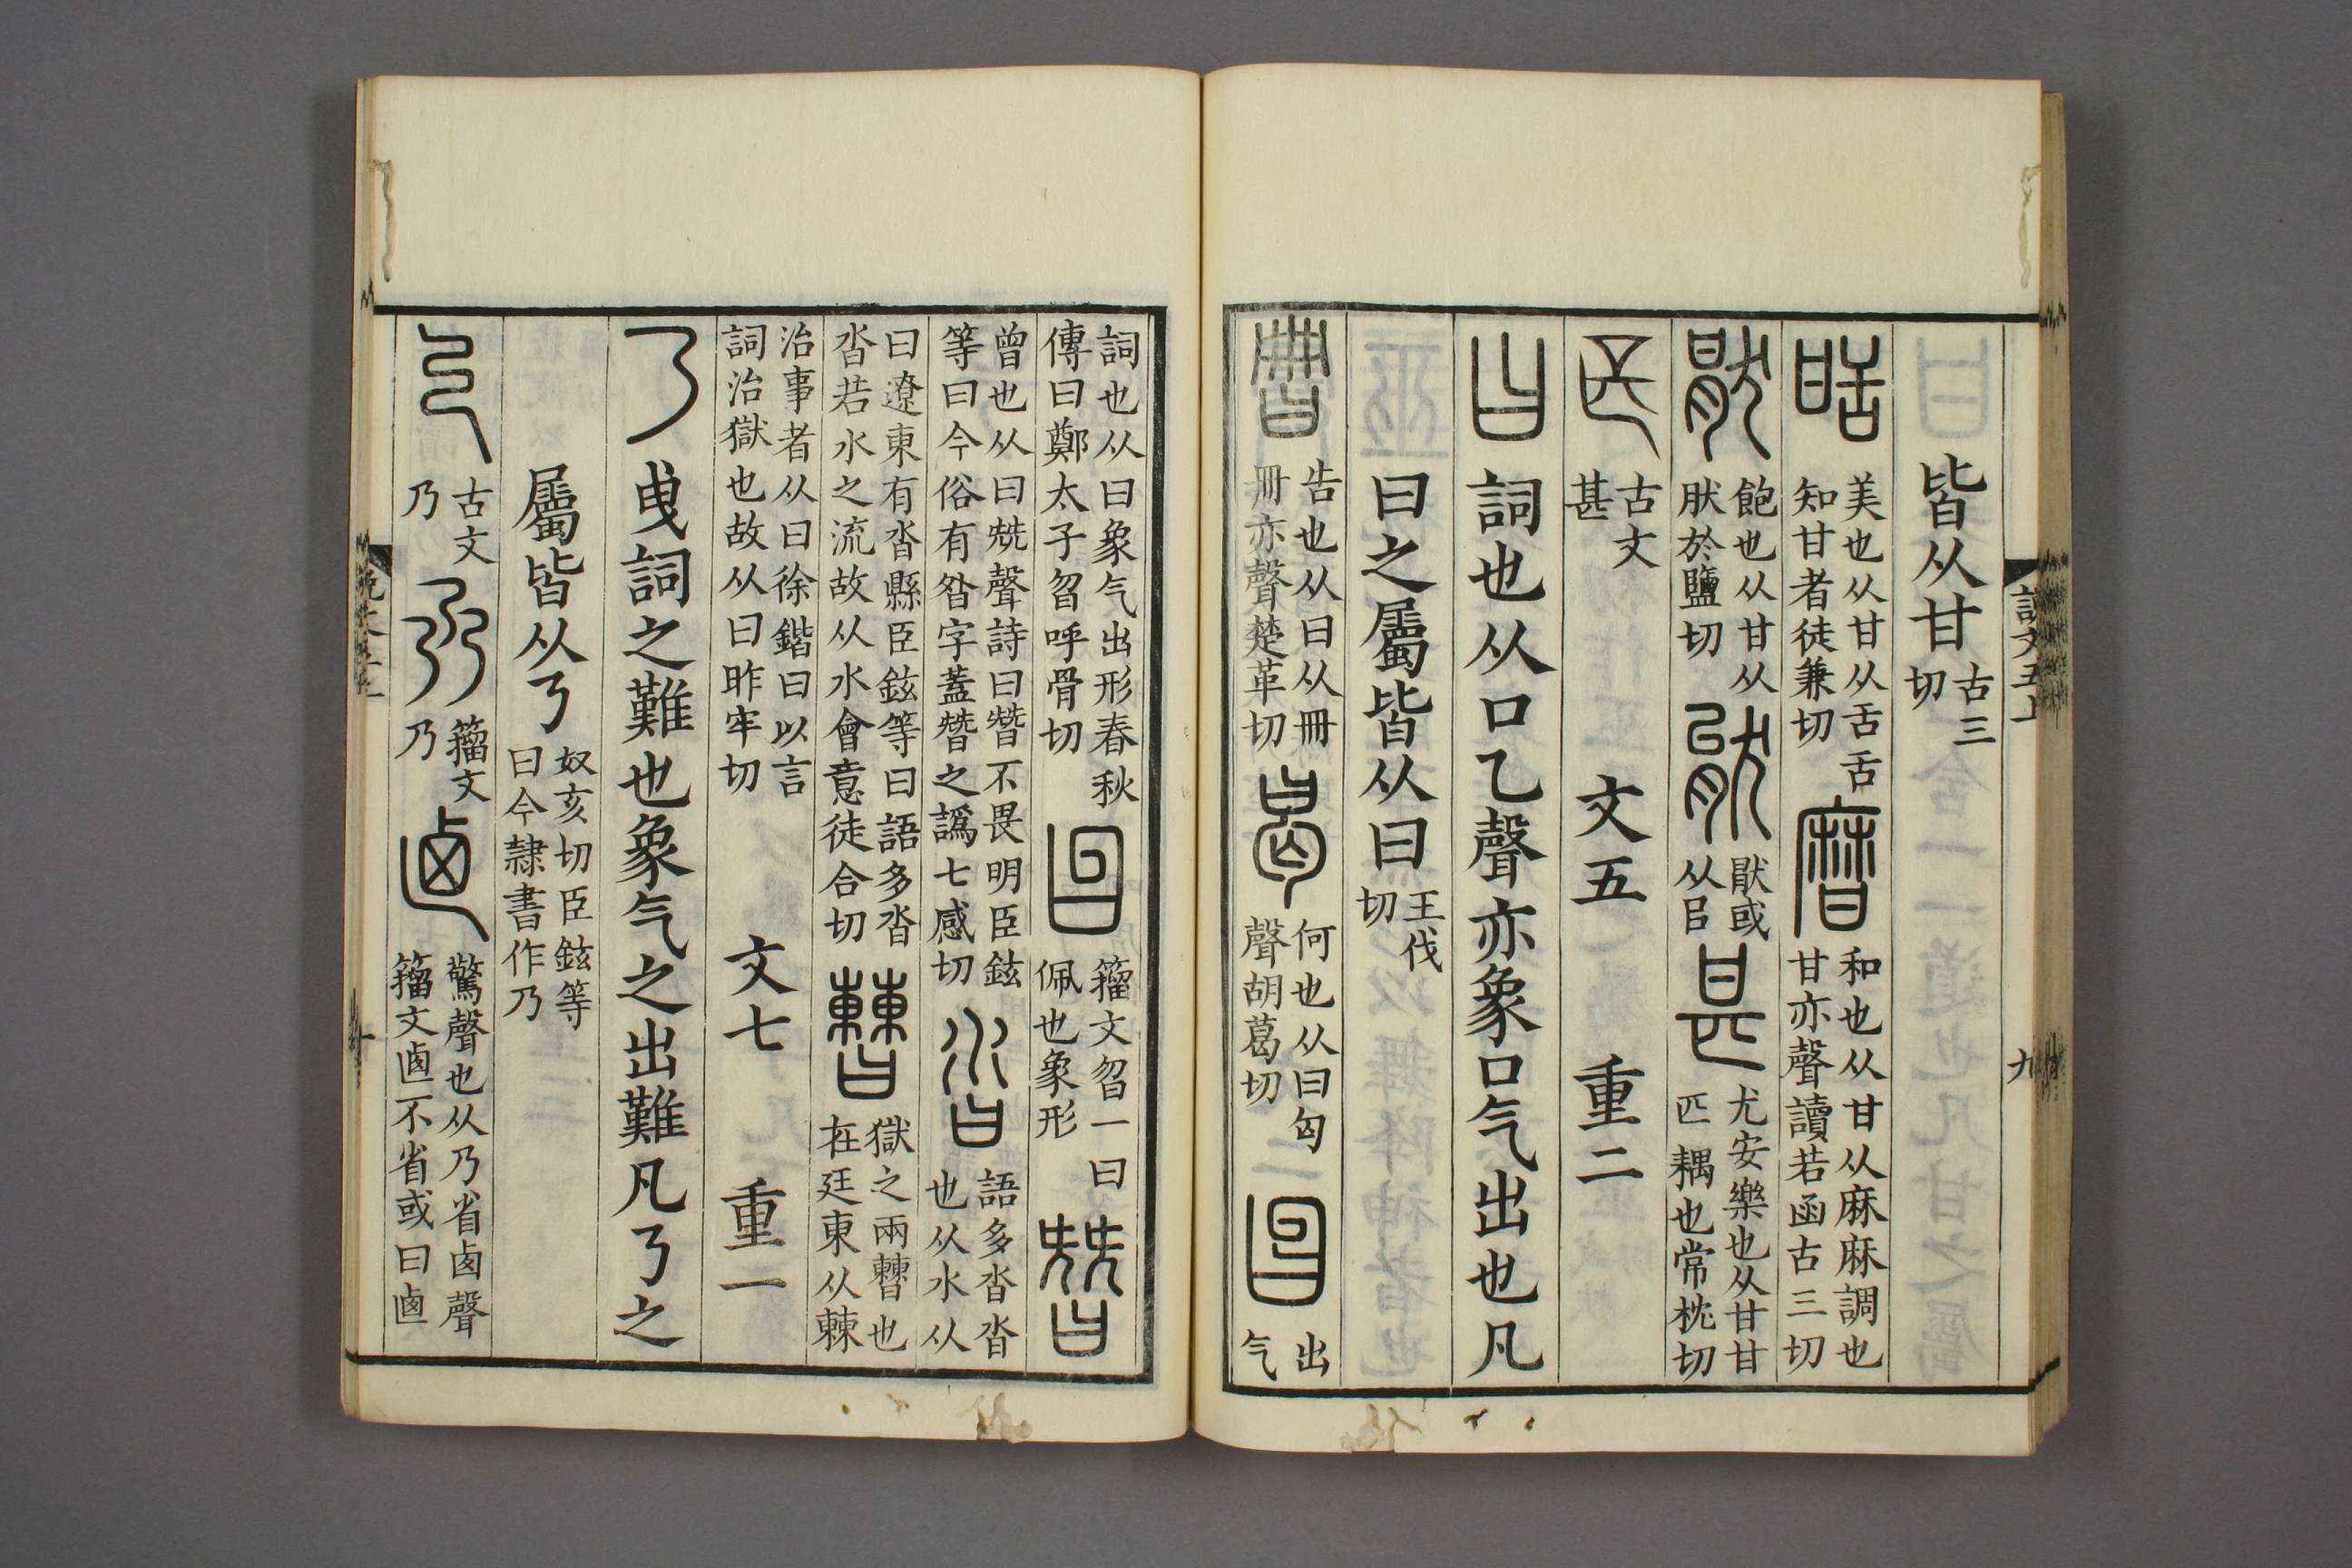 說文五上 九
皆从甘古三切
甛美也从甘从舌舌知甘者徒兼切𤯍和也从甘从麻麻調也甘亦聲讀若函古三切
猒飽也从甘从肰於鹽切猒或从㠯甚尤安樂也从甘甘匹耦也常枕切
古文甚 文五 重二
曰詞也从口乙聲亦象口气出也凡
曰之屬皆从曰王伐切
𠕋告也从曰从冊冊亦聲楚革切曷何也从曰匃聲胡葛切曶出气
詞也从曰象气出形春秋傳曰鄭太子曶呼骨切籀文曶一曰佩也象形朁
曾也从曰兓聲詩曰朁不畏明臣鉉等曰今俗有昝字蓋朁之譌七感切沓語多沓沓也从水从
曰遼東有沓縣臣鉉等曰語多沓沓若水之流故从水會意徒合切𣍘獄之兩𣍘也在廷東从㯥
治事者从曰徐鍇曰以言詞治獄也故从曰昨牢切 文七 重一
𠄎曳詞之難也象气之出難凡𠄎之
屬皆从𠄎奴亥切臣鉉等曰今隸書作乃
古文乃籀文乃𠧟驚聲也从乃省卥聲籀文𠧟不省或曰𠧟